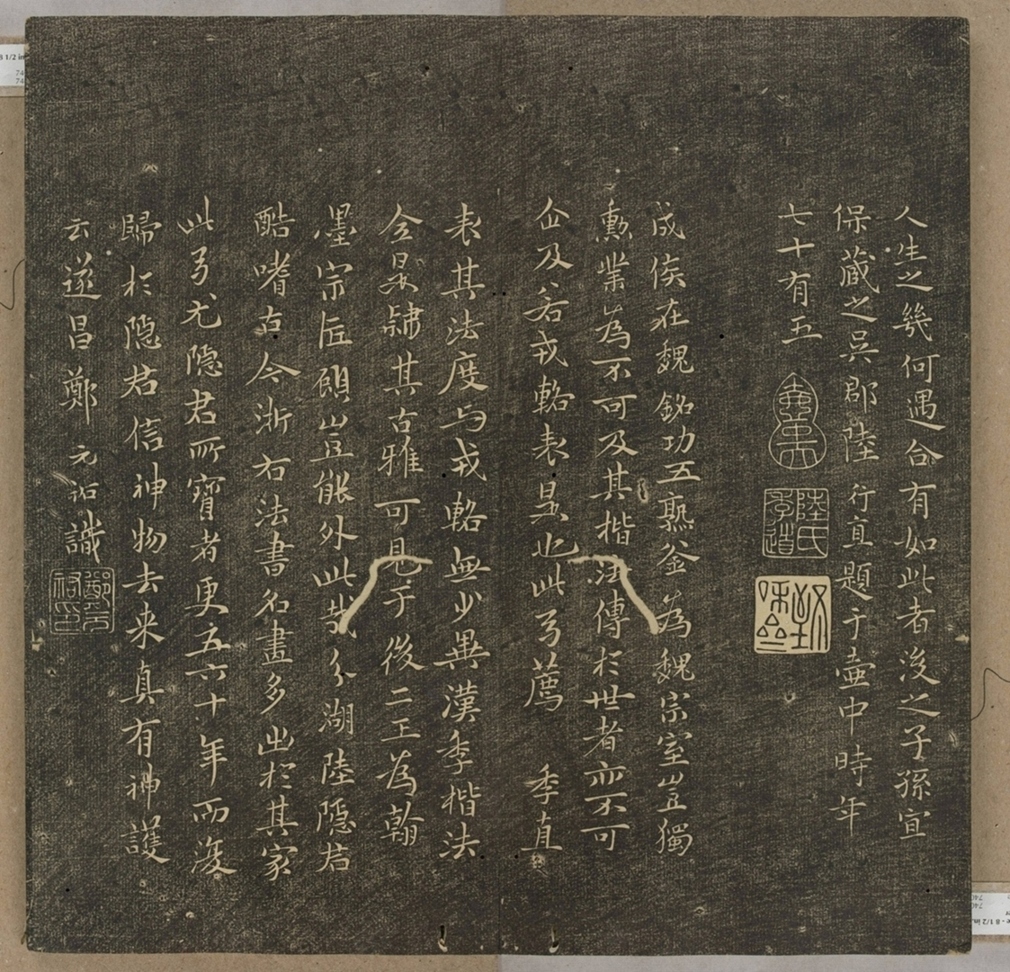 人生之幾何遇合有如此者後之子孫宜
保藏之吳郡陸行直題于壺中時年
七十有五
陸氏
成矦在魏銘功五熟釜為魏宗室豈獨
勳業為不可及其楷法傳於世者亦不可
企及若戎輅表是也此乃薦季直
表其法度与戎輅無少異漢季楷法
全是隷其古雅可見于後二王為翰
墨宗匠頋豈能外此哉分湖陸隱君
酷嗜古今浙右法書名畫多出於其家
此乃尤隱君所寶者更五六十年而復
歸於隱君信神物去來真有神護
云遂昌鄭元祐識